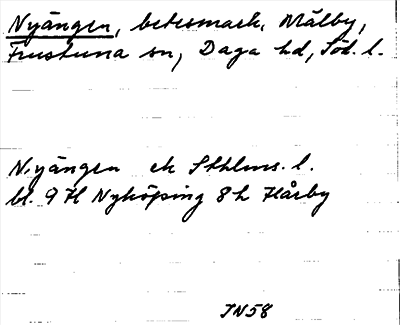 Nyängen, betesmark, Målby,
Frustuna sn, Daga hd, Söd. l.
Nyängen ek Sthlms. l.
bl. 9 H Nyköping 8 h Hårby
IN58